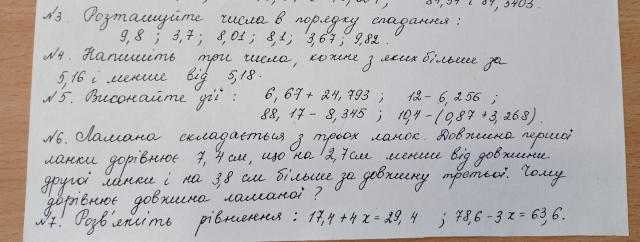 №3. Розташуйте числа в порядку спадання:
9,8; 3,7; 8,01; 8,1; 3,67; 9,82.
№4. Напишіть три числа, кожне з яких більше за
5,16 і менше від 5,18.
№5. Виконайте дії: 6,67 + 24,793; 12 - 6,256;
88,17 - 8,345; 10,4 - (0,87 + 3,268).
№6. Ламана складається з трьох ланок. Довжина першої
ланки дорівнює 7,4 см, що на 2,7 см менше від довжини
другої ланки і на 3,8 см більше за довжину третьої. Чому
дорівнює довжина ламаної?
№7. Розв'яжіть рівняння: 17,4 + 4x = 29,4; 78,6 - 3x = 63,6.